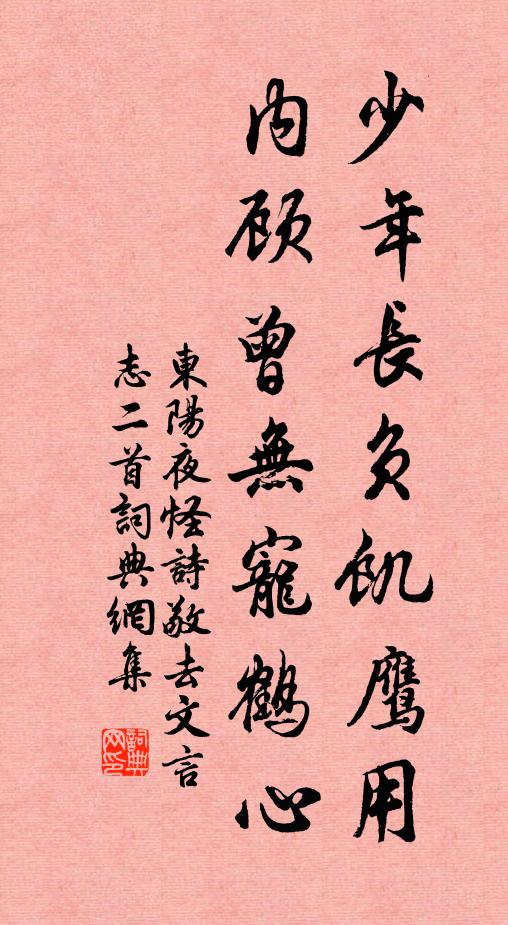 少年長負飢鷹用
内顾曾無寵鶴心
東陽夜怪詩敬去文言
志二首詞典網集
詞典网印